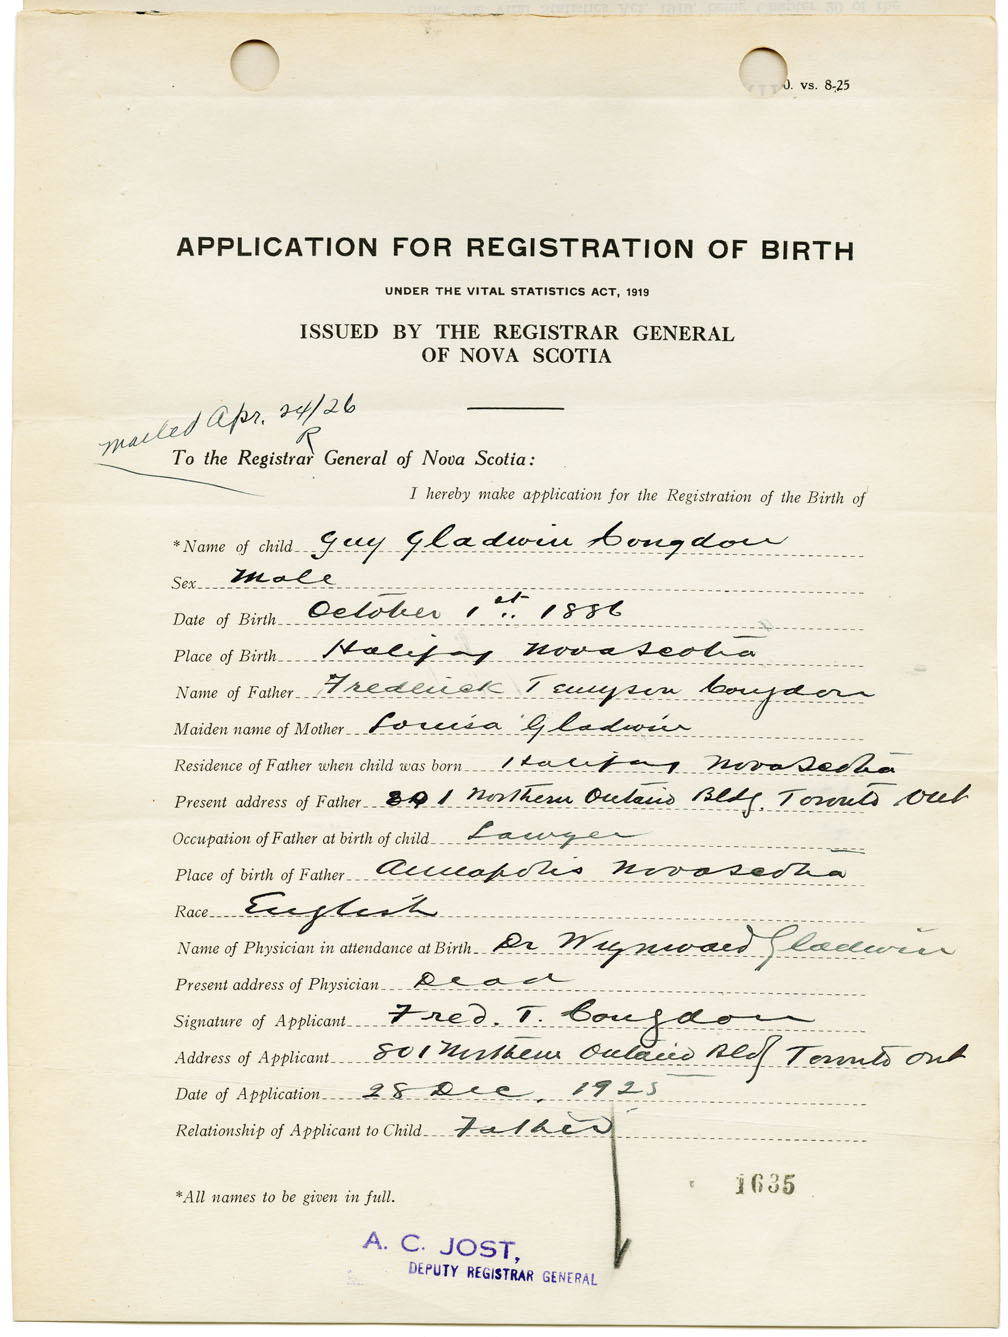 0. vs. 8-25
APPLICATION FOR REGISTRATION OF BIRTH
UNDER THE VITAL STATISTICS ACT, 1919
ISSUED BY THE REGISTRAR GENERAL
OF NOVA SCOTIA
mailed Apr. 24/26
R
To the Registrar General of Nova Scotia:
I hereby make application for the Registration of the Birth of
*Name of child Guy Gladwin Congdon
Sex Male
Date of Birth October 1st 1886
Place of Birth Halifax Nova Scotia
Name of Father Frederick Tennyson Congdon
Maiden name of Mother Louisa Gladwin
Residence of Father when child was born Halifax Nova Scotia
Present address of Father 801 Northern Ontario Bldg. Toronto Ont
Occupation of Father at birth of child Lawyer
Place of birth of Father Annapolis Nova Scotia
Race English
Name of Physician in attendance at Birth Dr Gladwin
Present address of Physician Dead
Signature of Applicant Fred. T. Congdon
Address of Applicant 801 Northern Ontario Bldg Toronto Ont
Date of Application 28 Dec. 1925
Relationship of Applicant to Child Father
1635
*All names to be given in full.
A. C. JOST,
DEPUTY REGISTRAR GENERAL